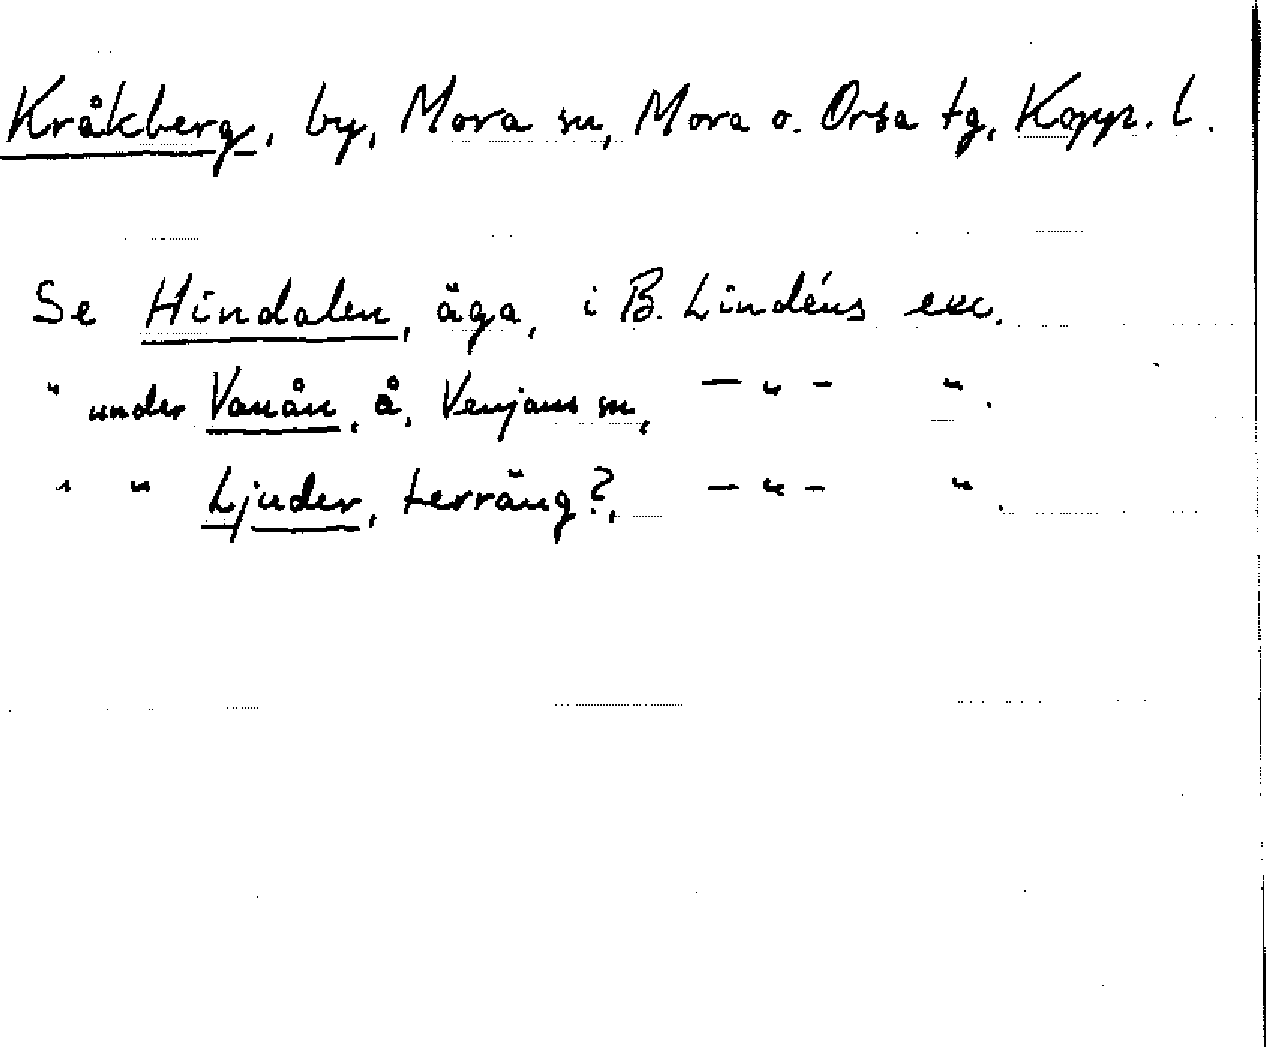 Kråkberg, by, Mora sn, Mora o. Orsa tg, Kopp. l.
Se Hindalen, äga, i B. Lindéns exc.
" under Vanån, å, Venjans sn, — " — ".
" " Ljuder, terräng?, — " — ".